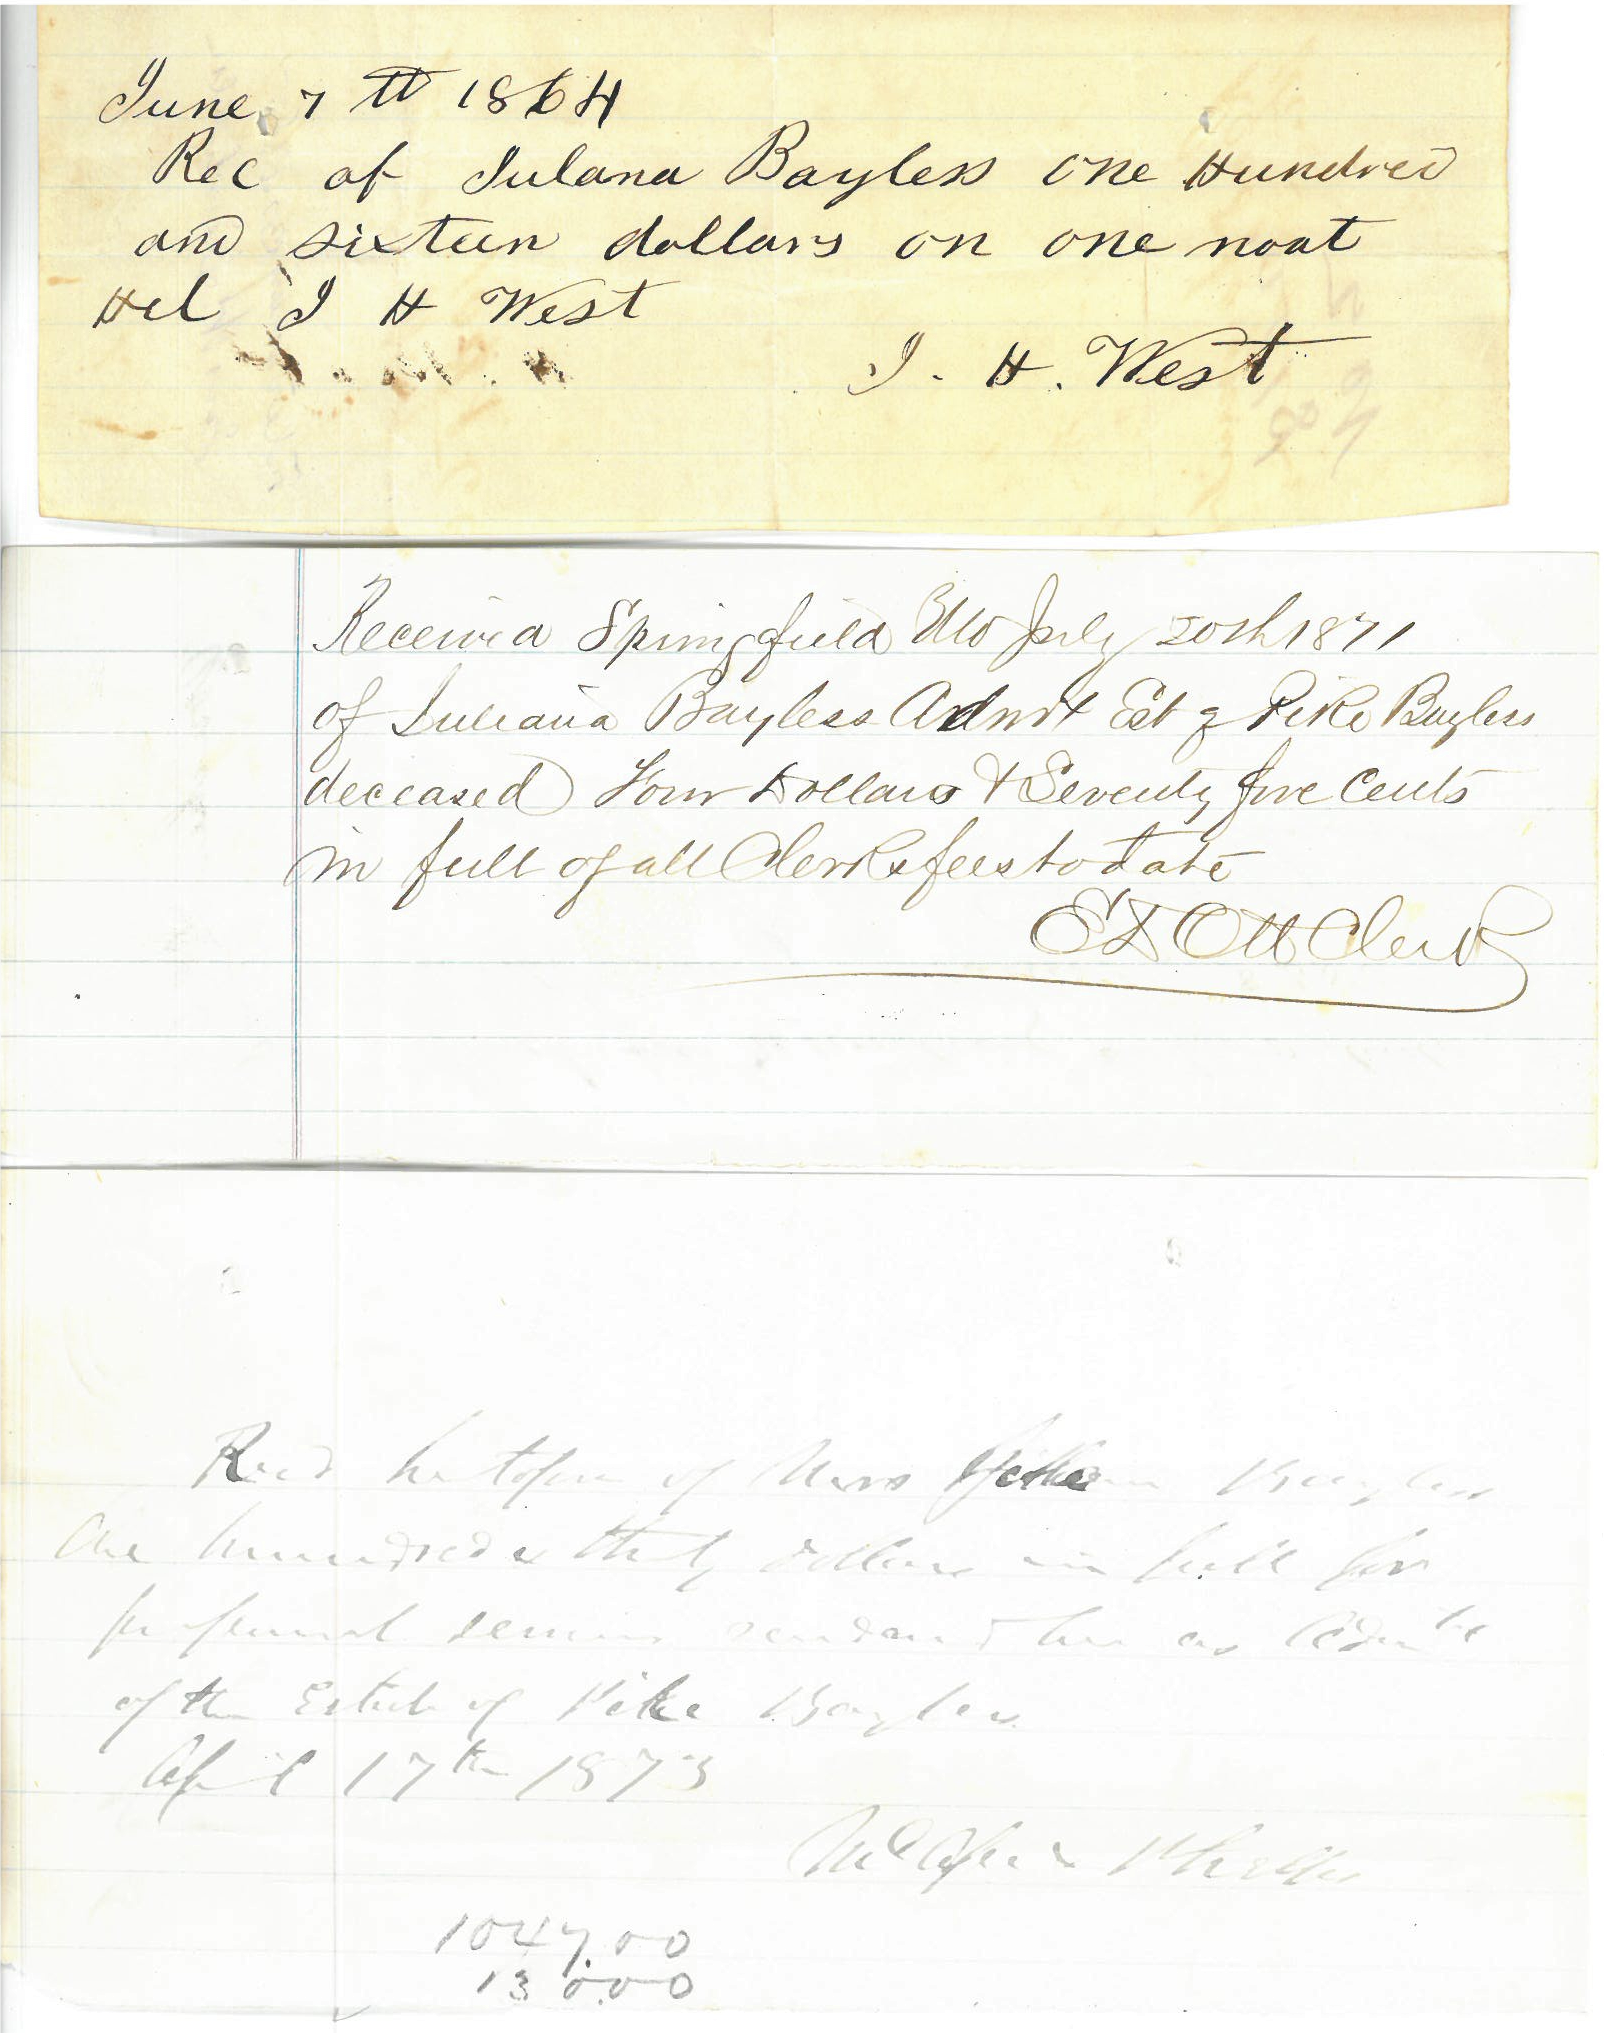 June 7th 1864
Rec of Julana Bayless one Hundred
and sixteen dollars on one noat
Hel J H West
J. H. West
Received Springfield Mo July 20th 1871
of Juliana Bayless Admrx Est of Pike Bayless
deceased Four Dollars & Seventy five Cents
in full of all Clerks fees to date
E D Ott Clerk
Recd heretofore of Mrs Bayless
One hundred & thirty dollars in full for
professional services rendered her as Admrx
of the Estate of Pike Bayless
April 17th 1873
McAfee & Phelps
1047.00
130.00